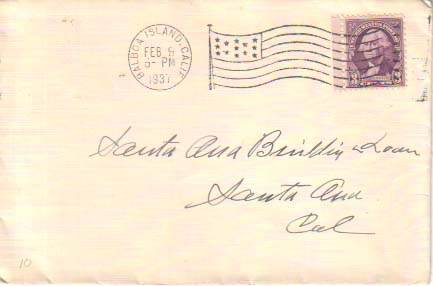 BALBOA ISLAND, CALIF.
FEB 9
5- PM
1937
3 3
Santa Ana Building & Loan
Santa Ana
Cal
10